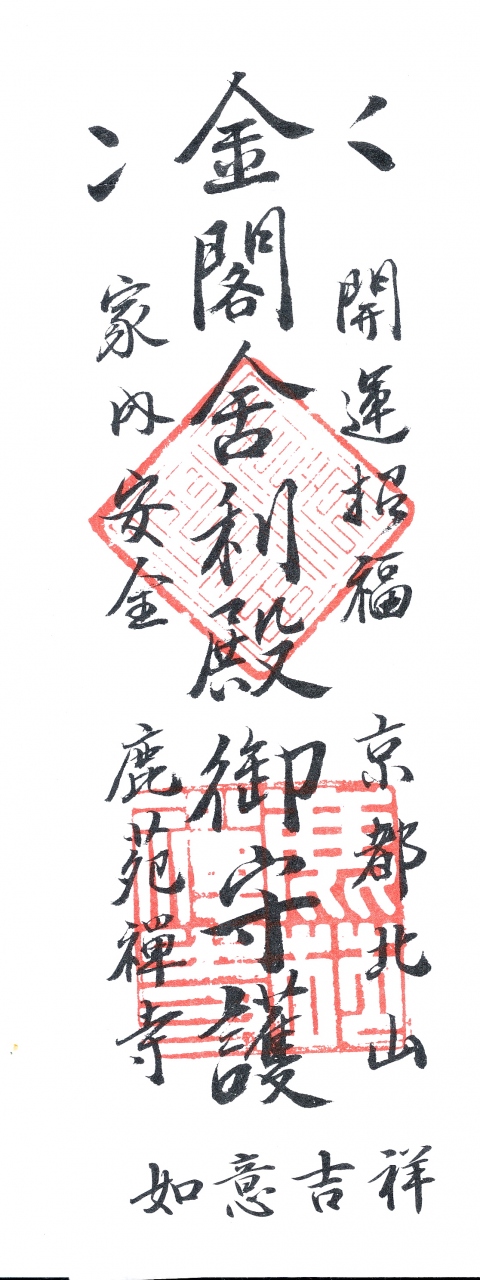 開運招福
京都北山
金閣舎利殿
御守護
家内安全
鹿苑禅寺
如意吉祥